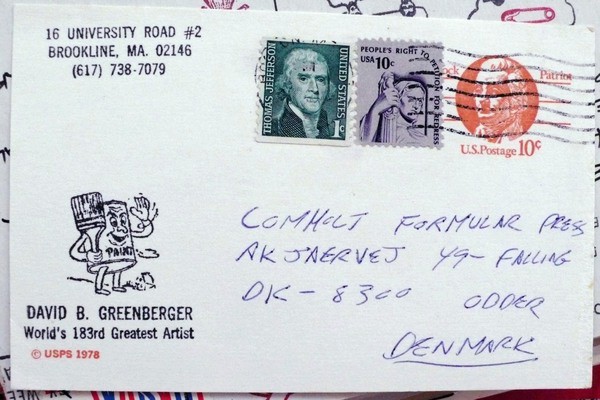 16 UNIVERSITY ROAD #2
BROOKLINE, MA. 02146
(617) 738-7079
THOMAS JEFFERSON
UNITED STATES
1c
PEOPLE'S RIGHT TO PETITION FOR REDRESS
USA 10c
Patriot
U.S. Postage 10¢
COMHOLT FORMULAR PRESS
AKJAERVEJ 49- FALLING
DK - 8300 ODDER
DENMARK
PAINT
DAVID B. GREENBERGER
World's 183rd Greatest Artist
© USPS 1978